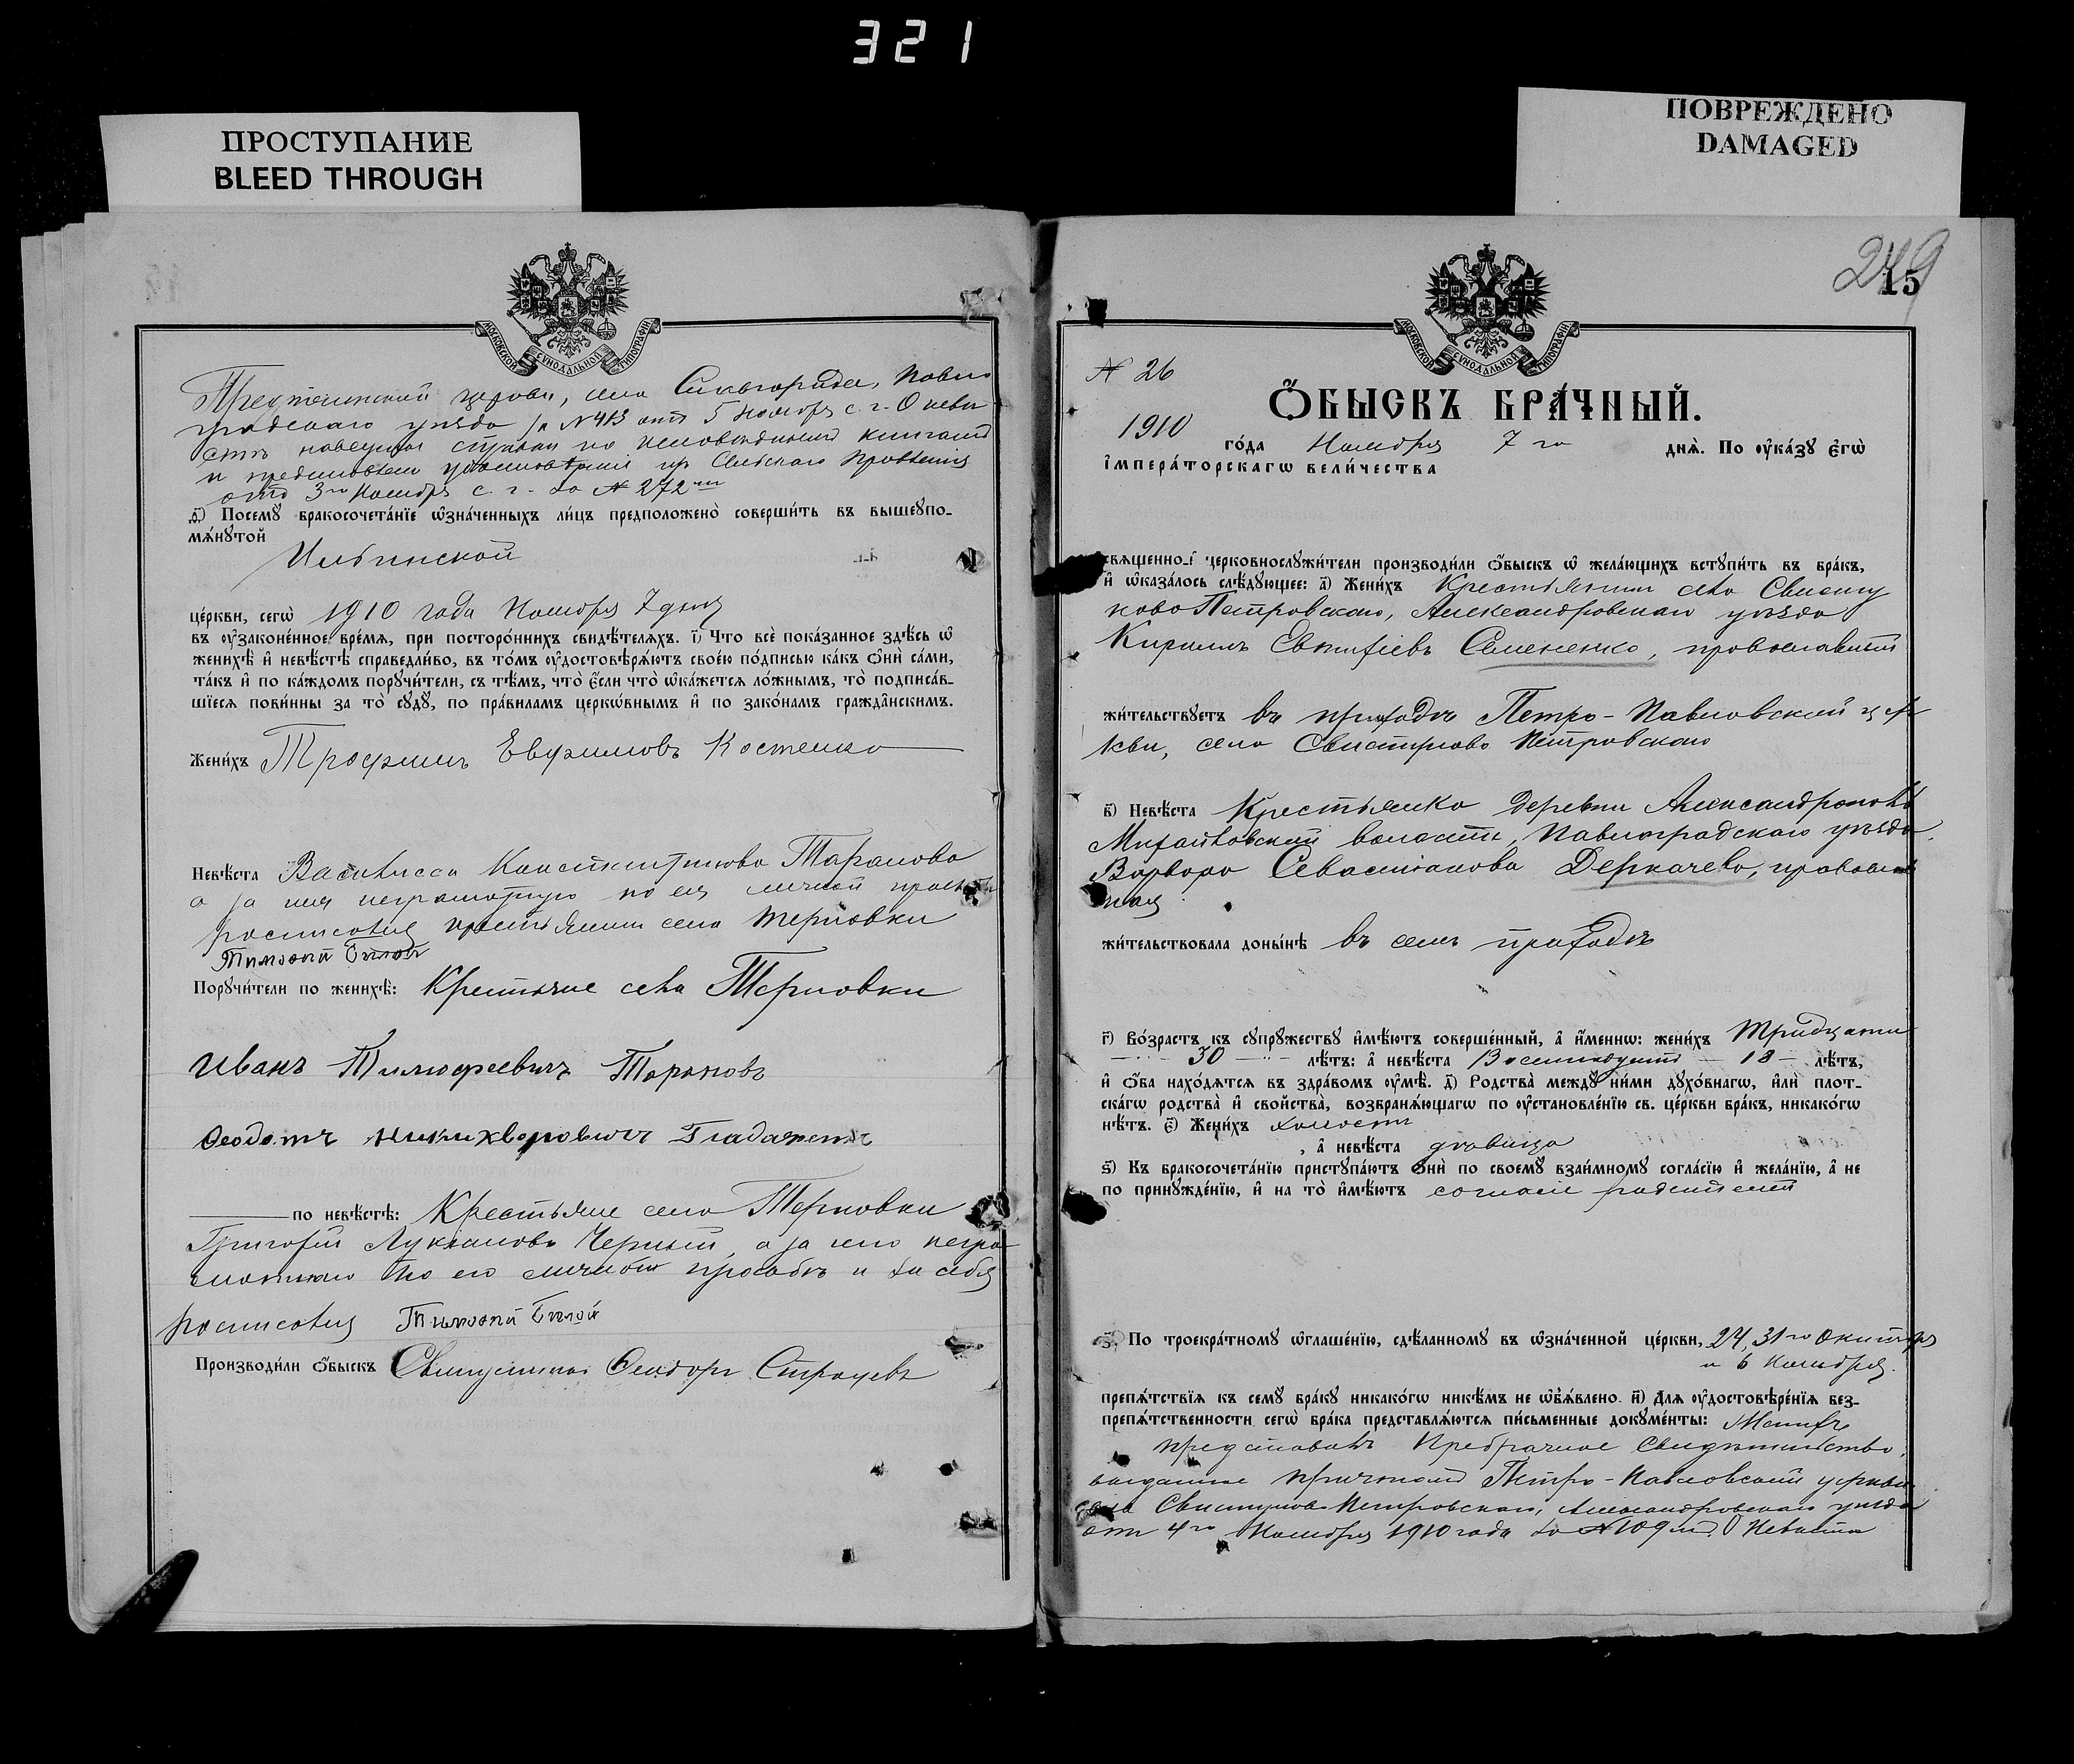 321
ПРОСТУПАНИЕ
BLEED THROUGH
ПОВРЕЖДЕНО
DAMAGED
МОСКОВСКОЙ СѴНОДАЛЬНОЙ ТИПОГРАФІИ
церкви, села Павло
градскаго уѣзда за № 413 отъ 5 Ноября с. г. О невѣ
стѣ наведена справка по исповѣднымъ книгамъ
и Сельскаго Правленія
отъ 3го Ноября с. г. за № 272мъ
ѳ҃) Посемꙋ бракосочета́нїе ѡзна́ченныхъ ли́цъ предположено̀ соверши́ть въ вышеꙋпо-
мѧ́нꙋтой
Ильинской
це́ркви, сегѡ̀ 1910 года Ноября 7 дня
въ оу҆законе́нное вре́мѧ, при посторо́ннихъ свидѣ́телѧхъ. і҃) Что всѐ пока́занное здѣ́сь ѡ҆
женихѣ̀ и҆ невѣ́стѣ справедли́во, въ то́мъ оу҆достовѣрѧ́ютъ свое́ю по́дписью ка́къ ѻ҆нѝ са́ми,
та́къ и҆ по ка́ждомъ порꙋчи́тели, съ тѣ́мъ, что̀ є҆́сли что̀ ѡ҆ка́жетсѧ ло́жнымъ, то̀ подписа́в-
шїесѧ пови́нны за то̀ сꙋдꙋ̀, по пра́виламъ церко́внымъ и҆ по зако́намъ гражда̑нскимъ.
Жени́хъ Трофимъ Евфимовъ Костенко
Невѣ́ста Василисса Константинова Таранова
а за нея неграмотную по ея личной просьбѣ
росписался крестьянинъ села Терновки
Тимоѳей Бѣлой
Порꙋчи́тели по женихѣ̀: Крестьяне села Терновки
Иванъ Тимофеевичъ Тарановъ
Ѳеодотъ Никихворовичъ
по невѣ́стѣ: Крестьяне села Терновки
Григорій Лукіановъ Черный, а за него негра
мотнаго по его личной просьбѣ и за себя
росписался Тимоѳей Бѣлой
Производи́ли ѻ҆́быскъ Священникъ Ѳеодоръ
249
15
МОСКОВСКОЙ СѴНОДАЛЬНОЙ ТИПОГРАФІИ
№ 26
Ѻ҆БЫСКЪ БРА́ЧНЫЙ.
1910 го́да Ноября 7го днѧ̀. По оу҆ка́зꙋ є҆гѡ̀
і҆мпера́торскагѡ вели́чества
свѧщенно-і҆ церковнослꙋжи́тели производи́ли ѻ҆́быскъ ѡ҆ жела́ющихъ встꙋпи́ть въ бра́къ,
и҆ ѡ҆каза́лось слѣ́дꙋющее: а҃) Жени́хъ Крестьянинъ села Свисту
ново Петровскаго, Александровскаго уѣзда
Кириллъ Евтифіевъ Семененко, православный
жи́тельствꙋетъ въ приходѣ Петро-Павловской цер
кви, села Свистуново Петровскаго
в҃) Невѣ́ста Крестьянка деревни Александрополь
Михайловской волости, Павлоградскаго уѣзда
Варвара Севастіанова Деркачева, православ
ная
жи́тельствовала доны́нѣ въ семъ приходѣ
г҃) Во́зрастъ къ сꙋпрꙋ́жествꙋ и҆мѣ́ютъ соверше́нный, а҆ и҆́меннѡ: жени́хъ Тридцати
30 лѣ́тъ: а҆ невѣ́ста Восемнадцати 18 лѣ́тъ,
и҆ ѻ҆́ба нахо́дѧтсѧ въ здра́вомъ оу҆мѣ̀. д҃) Родства̀ междꙋ̀ ни́ми дꙋхо́внагѡ, и҆лѝ плот-
ска́гѡ родства̀ и҆ свойства̀, возбранѧ́ющагѡ по оу҆становле́нїю св. це́ркви бра́къ, никако́гѡ
нѣ́тъ. є҃) Жени́хъ холостъ
, а҆ невѣ́ста дѣвица
ѕ҃) Къ бракосочета́нїю пристꙋпа́ютъ ѻ҆нѝ по своемꙋ̀ взаи́мномꙋ согла́сїю и҆ жела́нїю, а҆ не
по принꙋжде́нїю, и҆ на то̀ и҆мѣ́ютъ согласіе родителей
з҃) По троекра́тномꙋ ѡ҆глаше́нїю, сдѣ́ланномꙋ въ ѡ҆зна́ченной це́ркви, 24, 31го Октября
и 6 Ноября.
препѧ́тствїѧ къ семꙋ̀ бра́кꙋ никако́гѡ никѣ́мъ не ѡ҆б̾ѧ́влено. и҃) Длѧ оу҆достовѣре́нїѧ без-
препѧ́тственности сегѡ̀ бра́ка представлѧ́ютсѧ пи́сьменные докꙋме́нты: Женихъ
представилъ Предбрачное Свидѣтельство,
выданное причтомъ Петро-Павловской церкви
села Свистуново-Петровскаго, Александровскаго уѣзда
отъ 4го Ноября 1910 года за № 109мъ. О Невѣстѣ